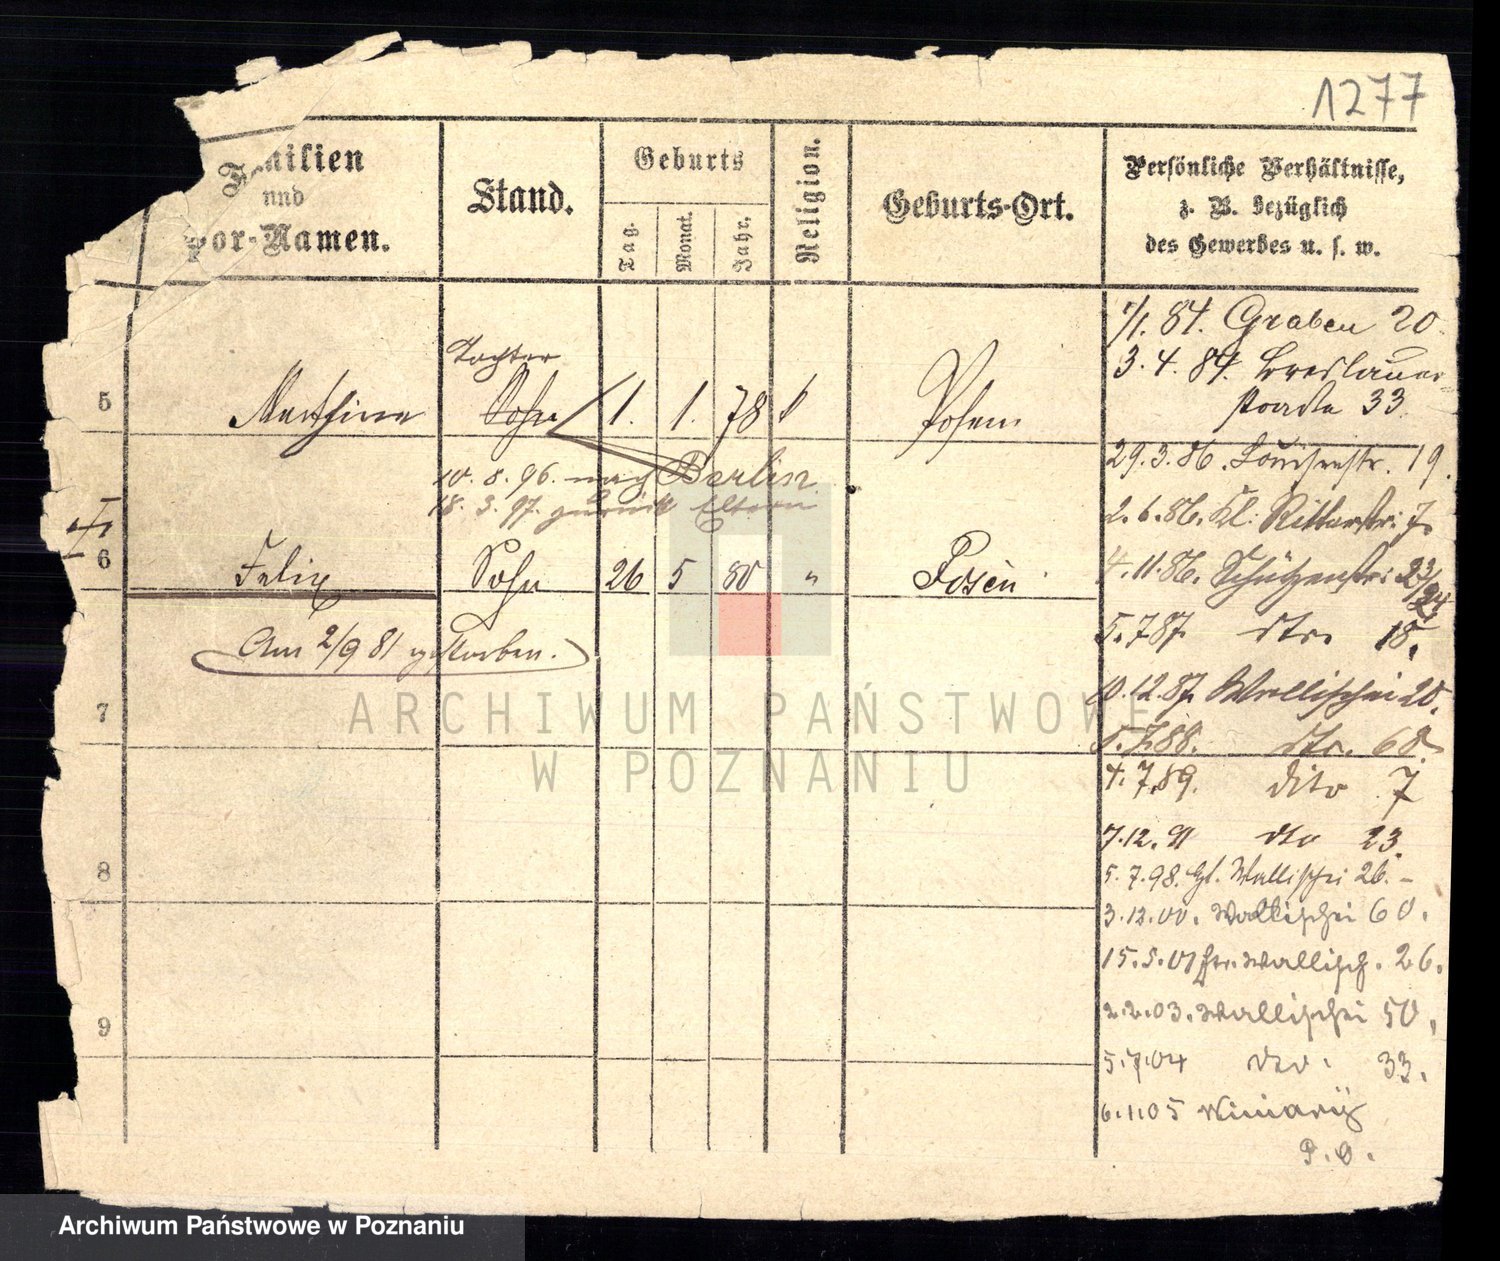 1277
Familien
und
Vor-Namen.
Stand.
Geburts
Tag.
Monat.
Jahr.
Religion.
Geburts-Ort.
Persönliche Verhältnisse,
z. B. bezüglich
des Gewerbes u. s. w.
Tochter
5 Sohn 1. 1. 78 Posen
10. 8. 96. nach Berlin
18. 3. 97. zurück Eltern
6 Felix Sohn 26 5 80 " Posen
Am 2/9 81 gestorben.
7
8
9
1/1. 84. Graben 20.
3. 4. 84. Breslauer
straße 33.
29. 3. 86. Louisenstr. 19.
2. 6. 86. Kl. Ritterstr. 7.
4. 11. 86. Schützenstr. 23/24
5. 7 87. dto. 18.
10. 12. 87. Wallischei 20.
5. 7. 88. dto. 68.
4. 7. 89. dito 7
7. 12. 91 dto 23.
5. 7. 98. Gr. Wallischei 26. –
3. 12. 00. Wallischei 60.
15. 5. 01 Wallisch. 26.
2. 2. 03. Wallischei 50.
5. 7. 04 dto. 33.
6. 1. 05 Winiary
P. O.
ARCHIWUM PAŃSTWOWE
W POZNANIU
Archiwum Państwowe w Poznaniu